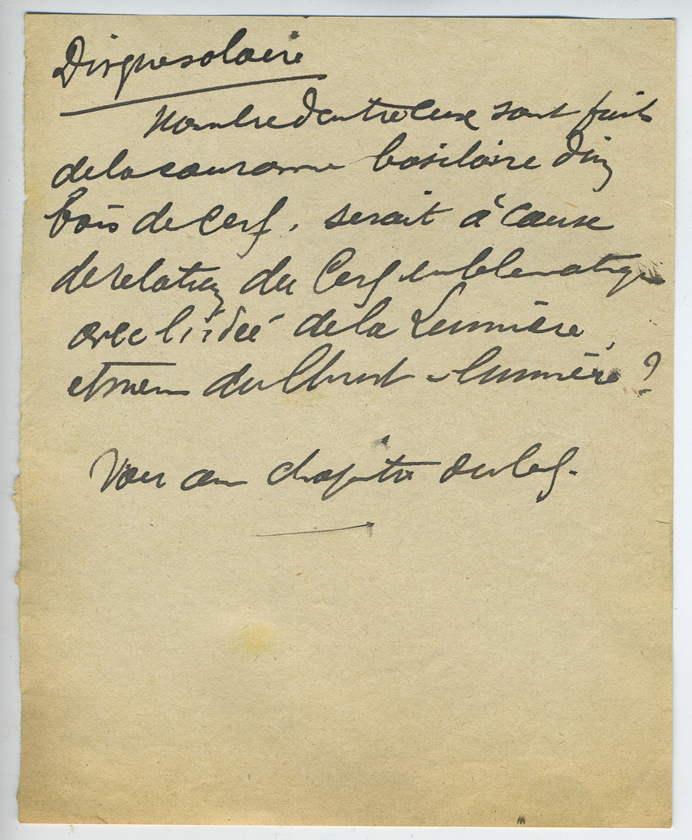 Disque solaire
Nombre d'entre eux sont faits
de la couronne basilaire d'un
bois de cerf, serait à cause
de relation du Cerf emblématique
avec l'idée de la Lumière,
et même du Christ-lumière ?
Voir au chapitre du Cerf.